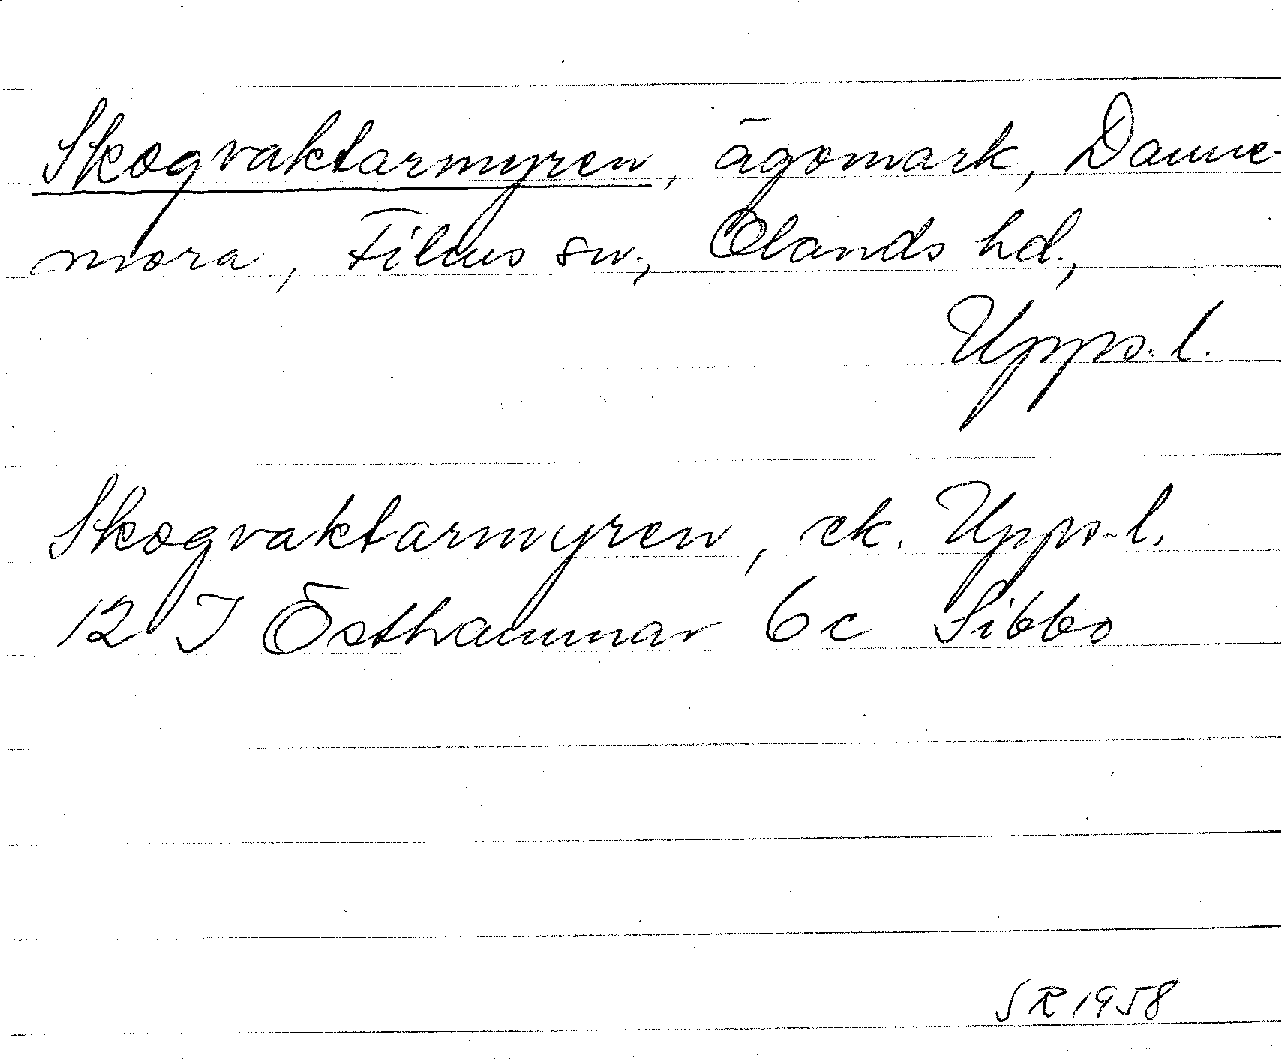 Skogvaktarmyren, ägomark, Danne-
mora, Films sn, Olands hd.,
Upps. l.
Skogvaktarmyren, ek. Upps. l.
12 I Östhammar 6c Sibbo
SR 1958